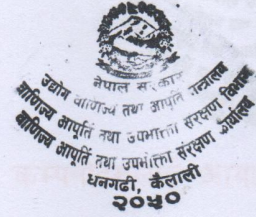 नेपाल सरकार
उद्योग वाणिज्य तथा आपूर्ति मन्त्रालय
वाणिज्य आपूर्ति तथा उपभोक्ता संरक्षण विभाग
वाणिज्य आपूर्ति तथा उपभोक्ता संरक्षण कार्यालय
धनगढी, कैलाली
२०५०